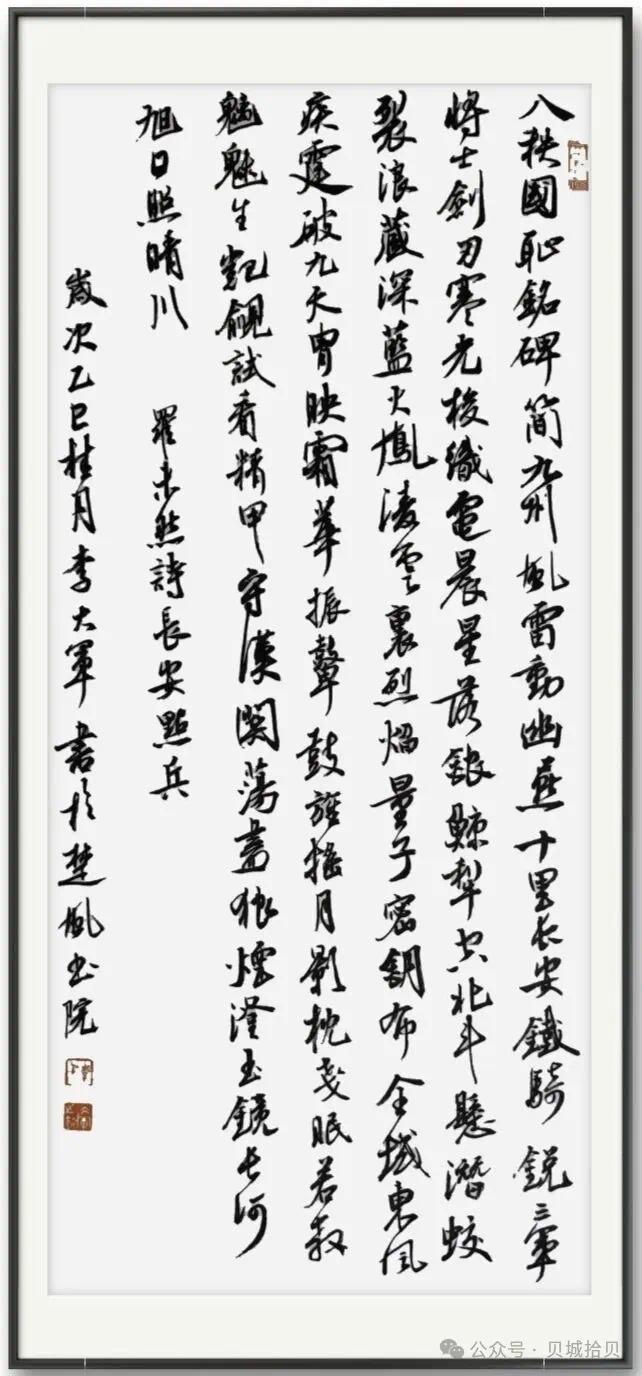 八秩國恥銘碑簡九州風雷動幽燕十里長安鐵騎銳三軍
將士劍刃寒光梭織電晨星落銀鯨犁空北斗懸潛蛟
裂浪藏深藍火鳳淩雲裏烈焰量子密鑰布全域東風
疾霆破九天胄映霜華振鼙鼓旌搖月影枕戈眠若教
魑魅生覬覦試看精甲守漢關蕩盡狼煙澄玉鏡長河
旭日照晴川
羅未然詩長安點兵
歲次乙巳桂月李大軍書於楚風書院
公众号·贝城拾贝